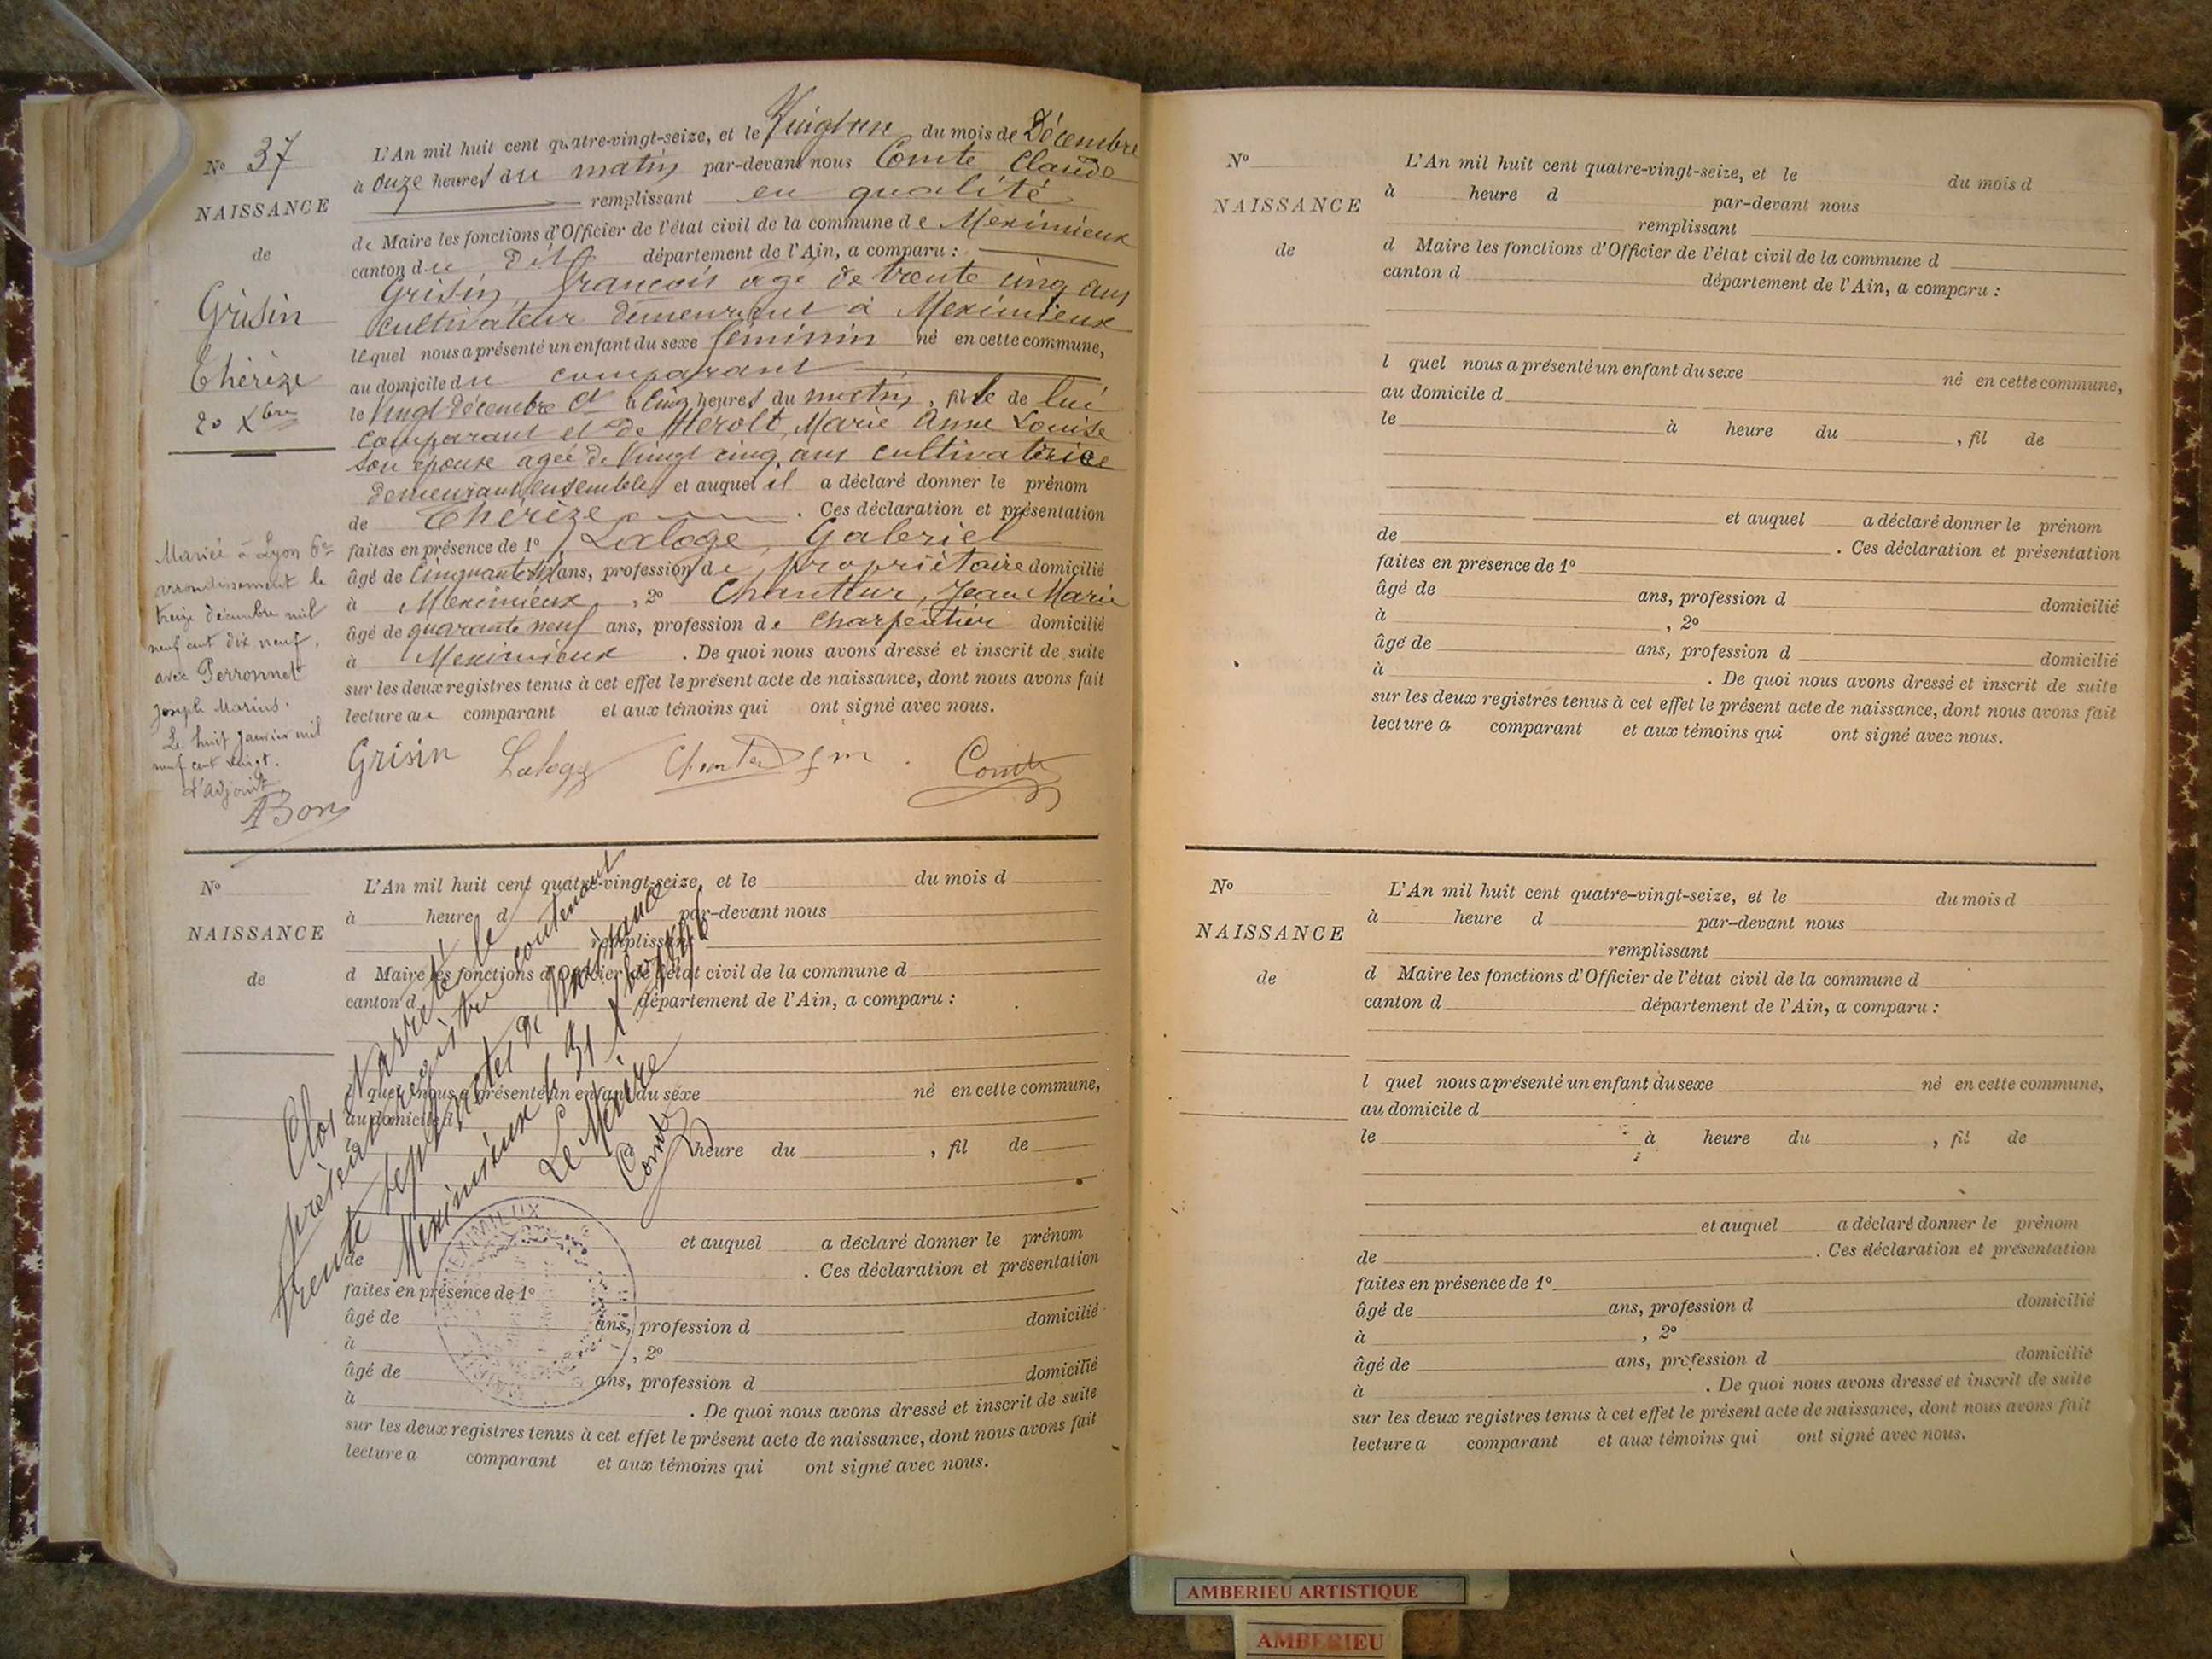 N° 37
NAISSANCE
de
Grisin
Thérèze
20 Xbre
L'An mil huit cent quatre-vingt-seize, et le Vingt un du mois de Décembre
à Onze heures du matin par-devant nous Comte Claude
remplissant en qualité
de Maire les fonctions d'Officier de l'état civil de la commune de Meximieux
canton du dit département de l'Ain, a comparu :
Grisin, François agé de trente cinq ans
cultivateur demeurant à Meximieux
lequel nous a présenté un enfant du sexe féminin né en cette commune,
au domicile du comparant
le Vingt Décembre Ct à cinq heures du matin, fille de lui
comparant et de Hérolt, Marie Anne Louise
son épouse agée de Vingt cinq ans cultivatrice
demeurant ensemble, et auquel il a déclaré donner le prénom
de Thérèze. Ces déclaration et présentation
faites en présence de 1° Laloge, Gabriel
âgé de Cinquante ans, profession de propriétaire domicilié
à Meximieux, 2° Chanteur, Jean Marie
âgé de quarante neuf ans, profession de Charpentier domicilié
à Meximieux. De quoi nous avons dressé et inscrit de suite
sur les deux registres tenus à cet effet le présent acte de naissance, dont nous avons fait
lecture au comparant et aux témoins qui ont signé avec nous.
Grisin Laloge Comte
Mariée à Lyon 6e
arrondissement le
treize décembre mil
neuf cent dix neuf,
avec Perronnet
Joseph Marius.
Le huit janvier mil
neuf cent vingt.
L'adjoint
ABon
N°
NAISSANCE
de
L'An mil huit cent quatre-vingt-seize, et le du mois d
à heure d par-devant nous
remplissant
d Maire les fonctions d'Officier de l'état civil de la commune d
canton d département de l'Ain, a comparu :
l quel nous a présenté un enfant du sexe né en cette commune,
au domicile d
le à heure du , fil de
et auquel a déclaré donner le prénom
de . Ces déclaration et présentation
faites en présence de 1°
âgé de ans, profession d domicilié
à , 2°
âgé de ans, profession d domicilié
à . De quoi nous avons dressé et inscrit de suite
sur les deux registres tenus à cet effet le présent acte de naissance, dont nous avons fait
lecture a comparant et aux témoins qui ont signé avec nous.
Clos & arreté le
présent registre contenant
trente sept actes de Naissance
Meximieux le 31 Xbre 1896
Le Maire
Comte
MEXIMIEUX
N°
NAISSANCE
de
L'An mil huit cent quatre-vingt-seize, et le du mois d
à heure d par-devant nous
remplissant
d Maire les fonctions d'Officier de l'état civil de la commune d
canton d département de l'Ain, a comparu :
l quel nous a présenté un enfant du sexe né en cette commune,
au domicile d
le à heure du , fil de
et auquel a déclaré donner le prénom
de . Ces déclaration et présentation
faites en présence de 1°
âgé de ans, profession d domicilié
à , 2°
âgé de ans, profession d domicilié
à . De quoi nous avons dressé et inscrit de suite
sur les deux registres tenus à cet effet le présent acte de naissance, dont nous avons fait
lecture a comparant et aux témoins qui ont signé avec nous.
N°
NAISSANCE
de
L'An mil huit cent quatre-vingt-seize, et le du mois d
à heure d par-devant nous
remplissant
d Maire les fonctions d'Officier de l'état civil de la commune d
canton d département de l'Ain, a comparu :
l quel nous a présenté un enfant du sexe né en cette commune,
au domicile d
le à heure du , fil de
et auquel a déclaré donner le prénom
de . Ces déclaration et présentation
faites en présence de 1°
âgé de ans, profession d domicilié
à , 2°
âgé de ans, profession d domicilié
à . De quoi nous avons dressé et inscrit de suite
sur les deux registres tenus à cet effet le présent acte de naissance, dont nous avons fait
lecture a comparant et aux témoins qui ont signé avec nous.
AMBERIEU ARTISTIQUE
AMBERIEU